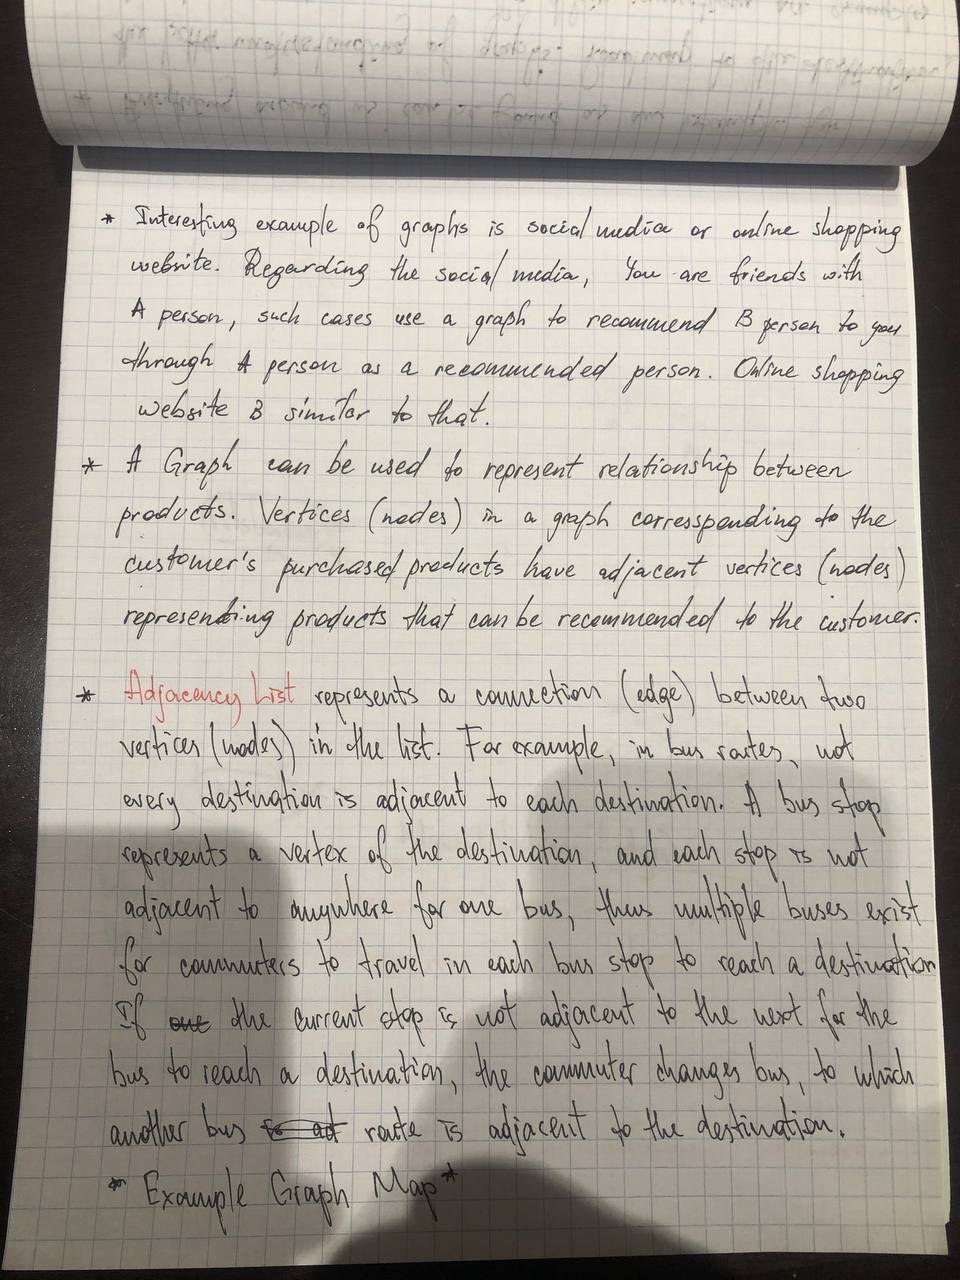 * Interesting example of graphs is social media or online shopping
website. Regarding the social media, You are friends with
A person, such cases use a graph to recommend B person to you
through A person as a recommended person. Online shopping
website is similar to that.
* A Graph can be used to represent relationship between
products. Vertices (nodes) in a graph corresspending to the
customer's purchased products have adjacent vertices (nodes)
representing products that can be recommended to the customer.
* Adjacency List represents a connection (edge) between two
vertices (nodes) in the list. For example, in bus routes, not
every destination is adjacent to each destination. A bus stop
represents a vertex of the destination, and each stop is not
adjacent to anywhere for one bus, thus multiple buses exist
for commuters to travel in each bus stop to reach a destination
If the current stop is not adjacent to the next for the
bus to reach a destination, the commuter changes bus, to which
another bus route is adjacent to the destination.
* Example Graph Map *